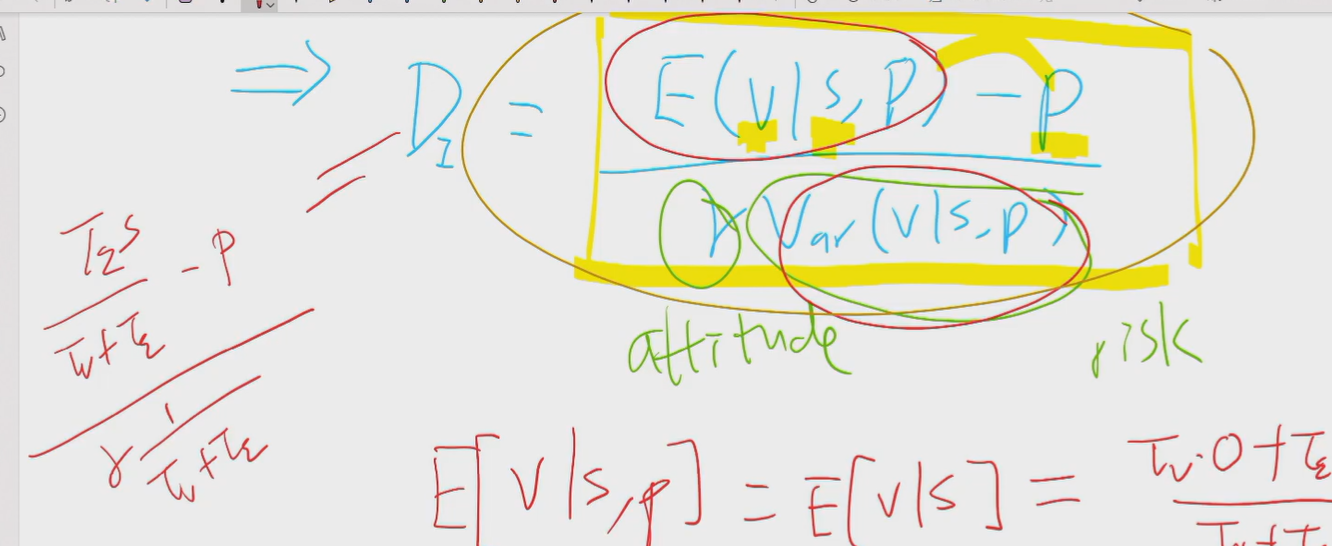 ⇒ D_I = (E(v|s,p) - p) / (γ Var(v|s,p))
attitude risk
= ((τ_ε s)/(τ_v+τ_ε) - p) / (γ 1/(τ_v+τ_ε))
E[v|s,p] = E[v|s] = (τ_v·0+τ_ε
τ_v+τ